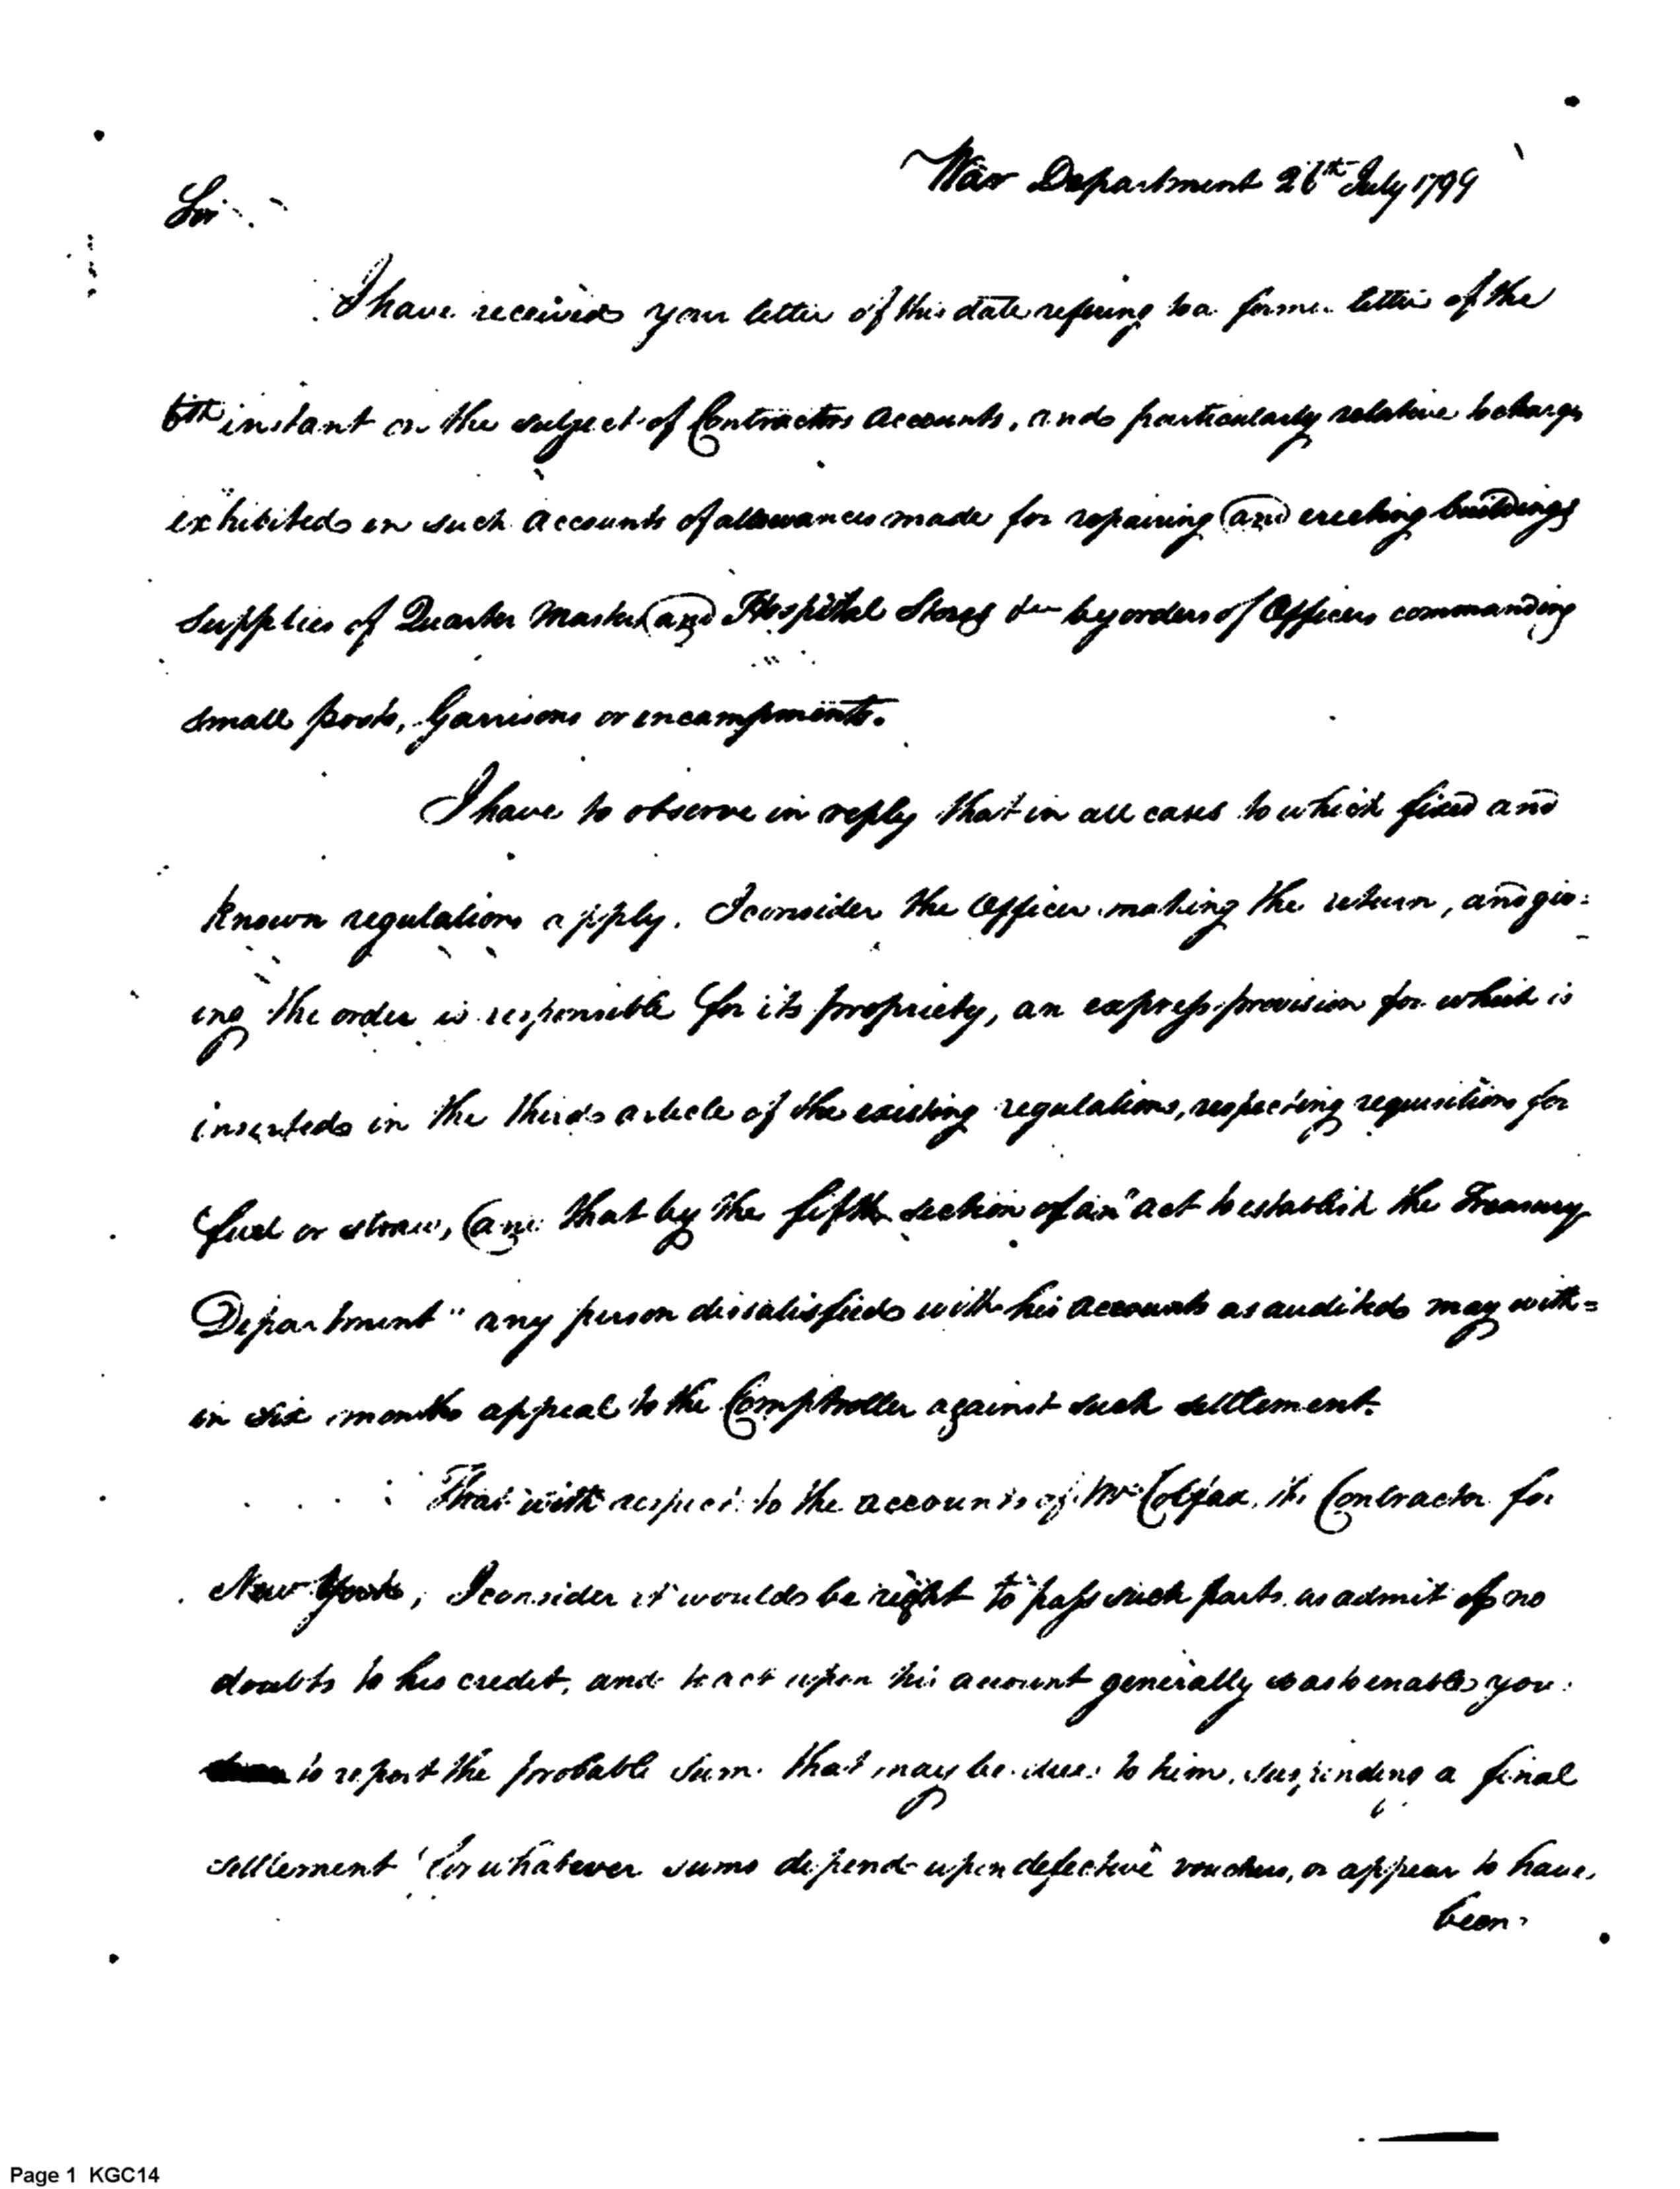 War Department 26th July 1799
Sir
I have received your letter of this date refering to a former letter of the
6th instant on the subject of Contractors accounts, and particularly relative to charges
exhibited in such accounts of allowances made for repairing and erecting buildings
supplies of Quarter Masters and Hospital Stores &c by orders of Officers commanding
small posts, Garrisons or encampments.
I have to observe in reply that in all cases to which fixed and
known regulations apply. I consider the Officer making the return, and giv=
ing the order is responsible for its propriety, an express provision for which is
inserted in the third article of the existing regulations, respecting requisitions for
fuel or straw, and that by the fifth section of an "act to establish the Treasury
Department" any person dissatisfied with his accounts as audited may with=
in six months appeal to the Comptroller against such settlement.
That with respect to the accounts of Mr Colfax, the Contractor for
New York, I consider it would be right to pass such parts as admit of no
doubts to his credit, and to act upon his account generally so as to enable you
to report the probable sum that may be due to him, suspending a final
settlement for whatever sums depend upon defective vouchers, or appear to have
been
Page 1 KGC14